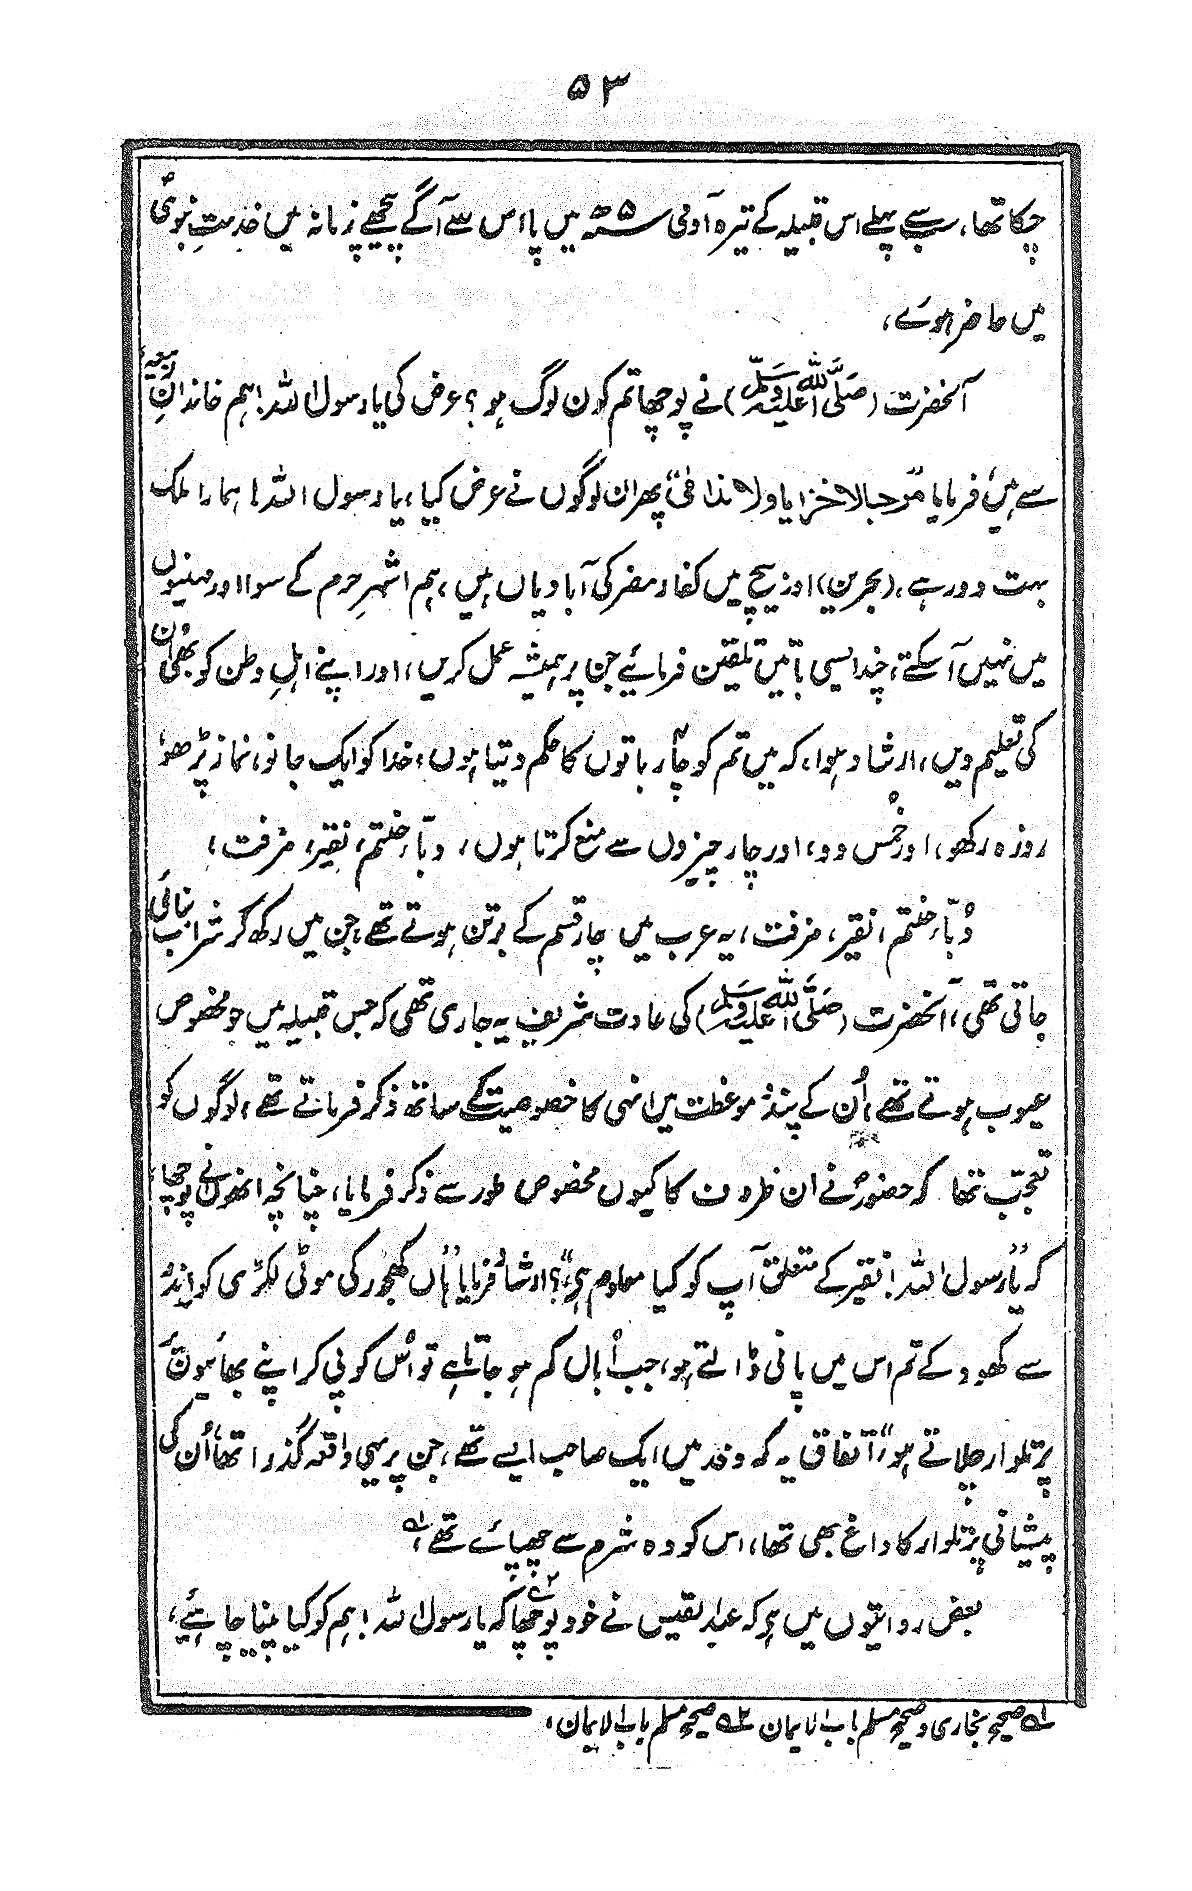 ۵۳
چکا تھا، سب سے پہلے اس قبیلہ کے تیرہ آدمی ۵ھ میں یا اس سے آگے پیچھے زمانہ میں خدمتِ نبوی
میں حاضر ہوئے،
آنحضرت (صلی اللہ علیہ وسلم) نے پوچھا تم کون لوگ ہو؟ عرض کی یا رسول اللہ! ہم خاندانِ ربیعہ
سے ہیں، فرمایا "مرحبا لا خزایا ولا ندامی" پھر ان لوگوں نے عرض کیا، یا رسول اللہ! ہمارا ملک
بہت دور ہے، (بحرین) اور بیچ میں کفار مضر کی آبادیاں ہیں، ہم اشہرِ حرم کے سوا اور مہینوں
میں نہیں آ سکتے، چند ایسی باتیں تلقین فرمائیے جن پر ہمیشہ عمل کریں، اور اپنے اہلِ وطن کو بھی اُن
کی تعلیم دیں، ارشاد ہوا، کہ میں تم کو چار باتوں کا حکم دیتا ہوں، خدا کو ایک جانو، نماز پڑھو
روزہ رکھو، اور خُمس دو، اور چار چیزوں سے منع کرتا ہوں، دبّاء، ختم، نقیر، مزفت،
دُبّاء، ختم، نقیر، مزفت، یہ عرب میں چار قسم کے برتن ہوتے تھے، جن میں رکھ کر شراب بنائی
جاتی تھی، آنحضرت (صلی اللہ علیہ وسلم) کی عادت شریف یہ جاری تھی کہ جس قبیلہ میں جو مخصوص
عیوب ہوتے تھے، اُن کے پند و موعظت میں انہی کا خصوصیت کے ساتھ ذکر فرماتے تھے، لوگوں کو
تعجّب تھا کہ حضورؐ نے ان ظروف کا کیوں مخصوص طور سے ذکر فرمایا، چنانچہ انھوں نے پوچھا
کہ "یا رسول اللہ! نقیر کے متعلق آپ کو کیا معلوم ہی"؟ ارشاد فرمایا "ہاں کھجور کی موٹی لکڑی کو اندر
سے کھود کے تم اس میں پانی ڈالتے ہو، جب اُبال کم ہو جاتا ہے تو اُس کو پی کر اپنے بھائیوں
پر تلوار چلاتے ہو"، اتفاق یہ کہ وفد میں ایک صاحب ایسے تھے، جن پر یہی واقعہ گذرا تھا، اُن کی
پیشانی پر تلوار کا داغ بھی تھا، اس کو وہ شرم سے چھپاتے تھے، ۱؎
بعض روایتوں میں ہی کہ عبدالقیس نے خود پوچھا ۲؎ کہ یا رسول اللہ! ہم کو کیا پینا چاہئے،
۱؎ صحیح بخاری و صحیح مسلم باب الایمان ۲؎ صحیح مسلم باب الایمان،